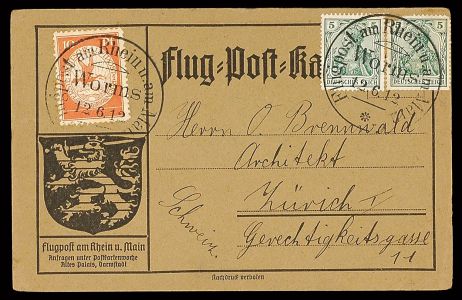 10 Pf
Flugpost am Rhein u. am Main
Worms
12.6.12
Flug-Post-Ka
5 5
DEUTSCHES REICH
Flugpost am Rhein u. am Main
Worms
12.6.12
Herrn O. Brennwald
Architekt
Zürich I
Schweiz.
Gerechtigkeitsgasse
11
Flugpost am Rhein u. Main
Anfragen unter Postkartenwoche
Altes Palais, Darmstadt
Nachdruck verboten